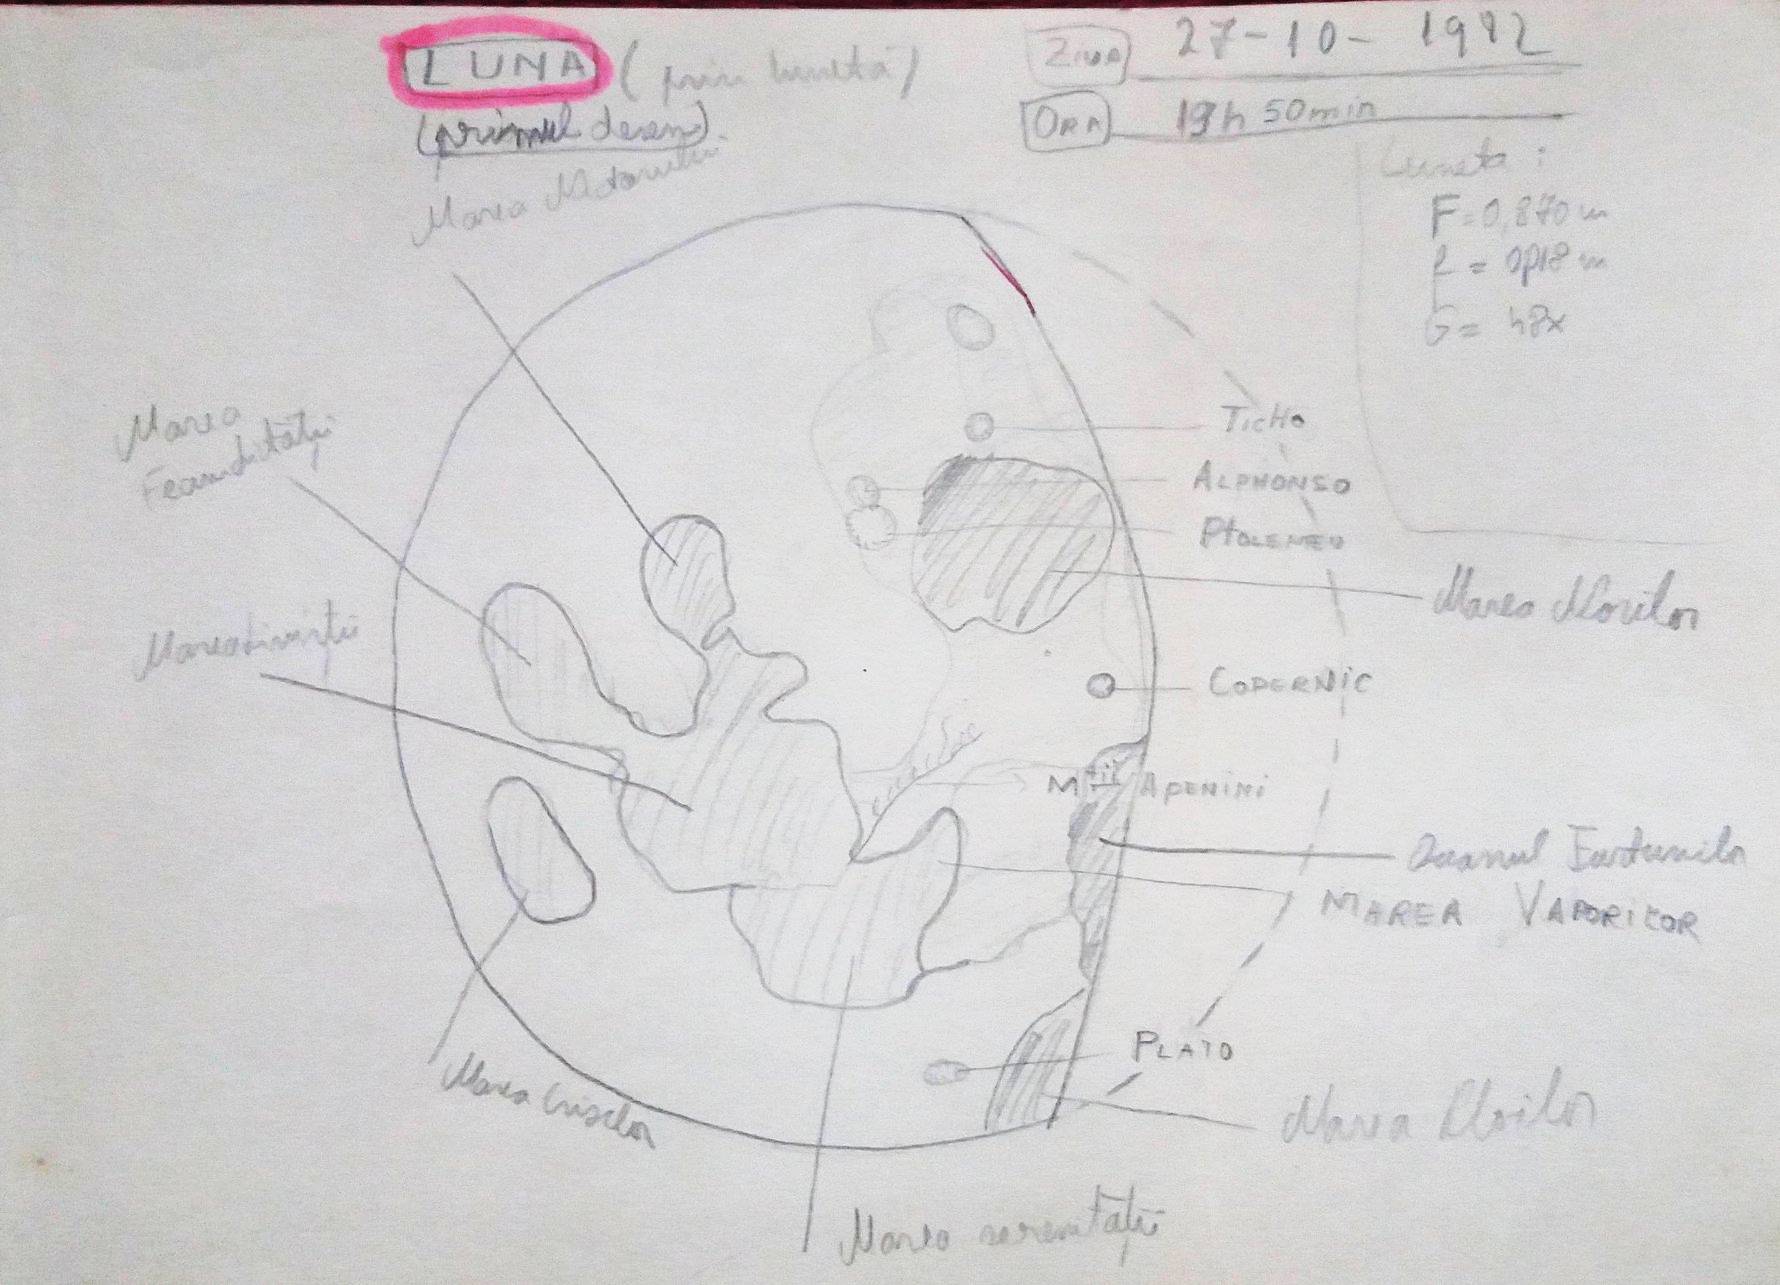 LUNA (prin lunetă)
(primul desen).
ZIUA 27-10-1982
ORA 19h 50min
Luneta:
F=0,870 m
f = 0,018 m
G = 48x
Marea Nectarului
Marea
Fecundității
Marea Liniștii
TICHO
ALPHONSO
PTOLEMEU
Marea Norilor
COPERNIC
Mții APENINI
Oceanul Furtunilor
MAREA VAPORILOR
PLATO
Marea Ploilor
Marea Criselor
Marea serenității